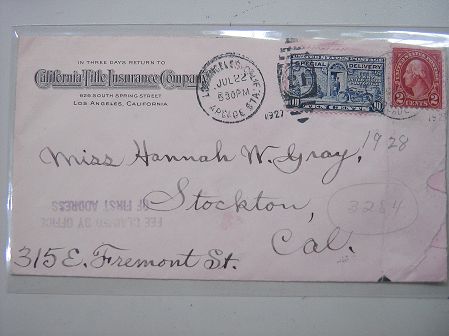 IN THREE DAYS RETURN TO
California Title Insurance Company
626 SOUTH SPRING STREET
LOS ANGELES, CALIFORNIA
LOS ANGELES, CALIF.
JUL 22
530 PM
ARCADE STA.
1927
UNITED STATES POSTAGE
SPECIAL DELIVERY
10 TEN CENTS 10
2 CENTS 2
1928
Miss Hannah W. Gray,
Stockton,
3284
Cal.
FEE CLAIMED BY OFFICE
OF FIRST ADDRESS
315 E. Fremont St.